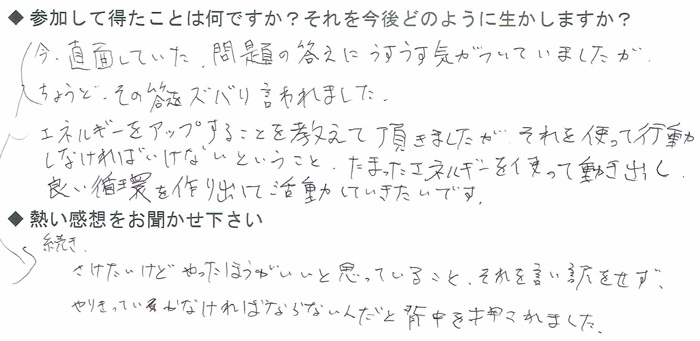 ◆ 参加して得たことは何ですか？それを今後どのように生かしますか？
今、直面していた、問題の答えにうすうす気がついていましたが、
ちょうど、その答えをズバリ言われました。
エネルギーをアップすることを教えて頂きましたが、それを使って行動
しなければいけないということ、たまったエネルギーを使って動き出し、
良い循環を作り出して活動していきたいです。
◆ 熱い感想をお聞かせ下さい
続き、
さけたいけどやったほうがいいと思っていること、それを言い訳をせず、
やりきっていかなければならないんだと背中を押されました。